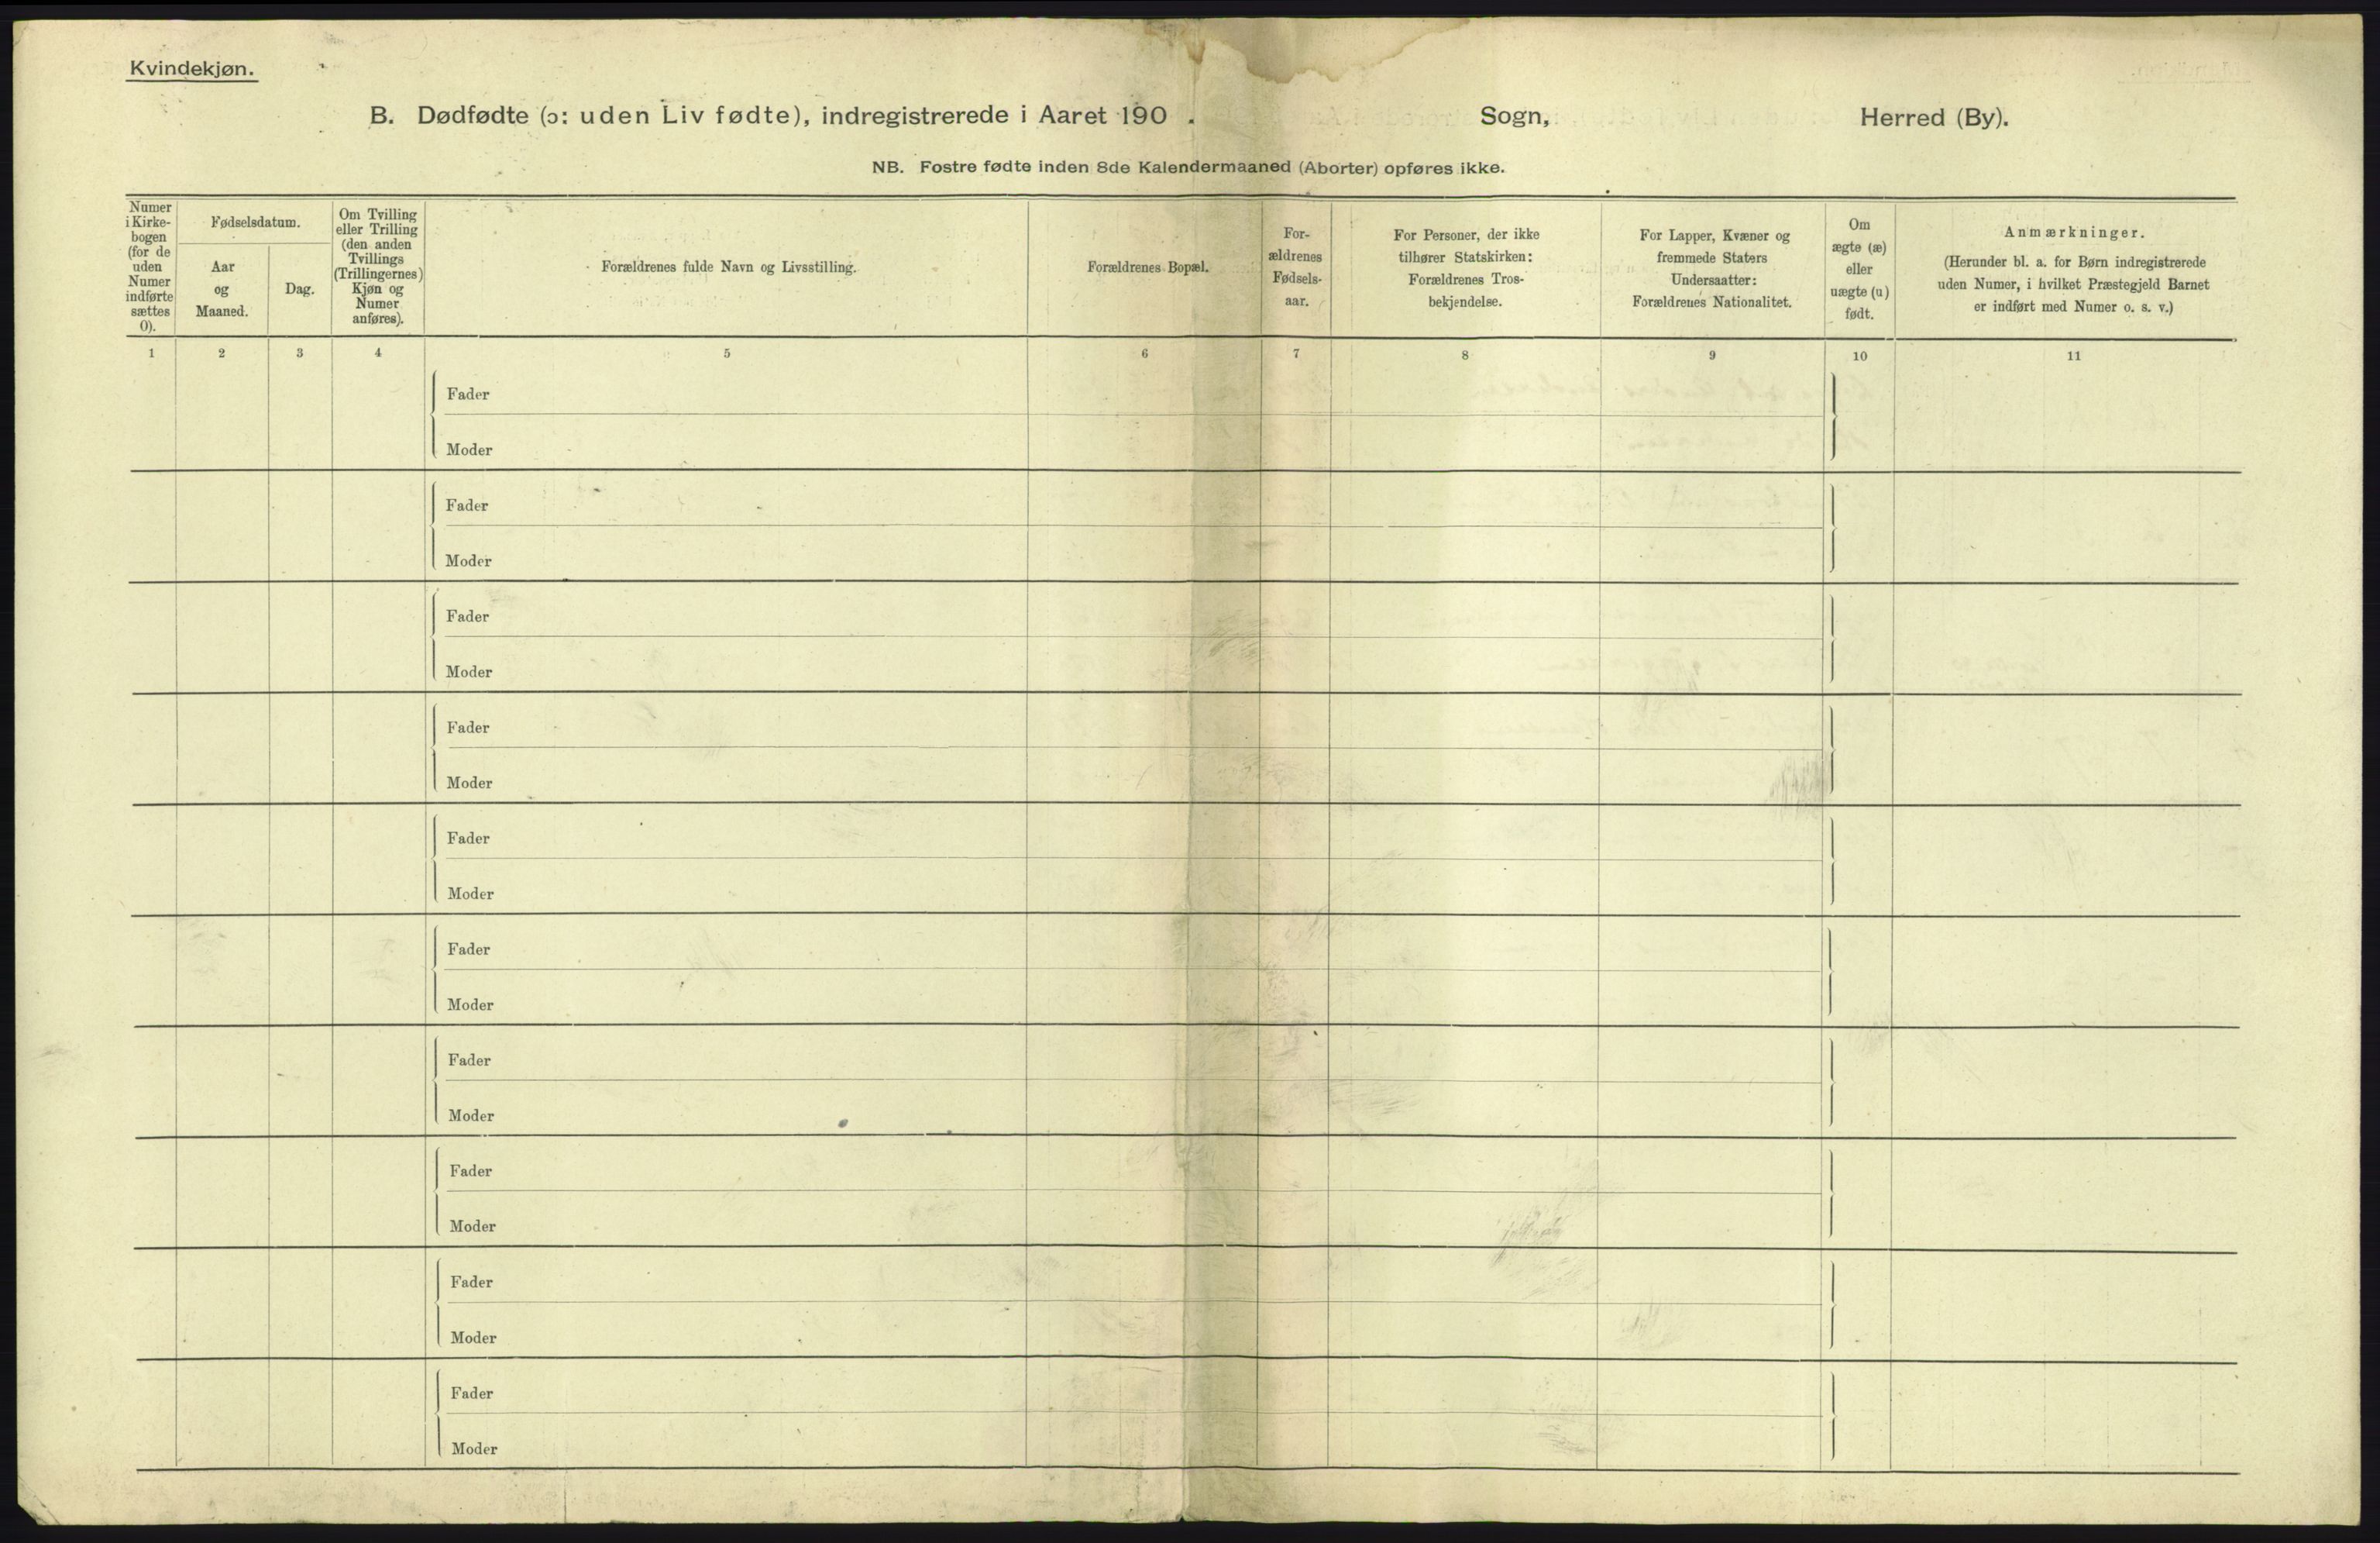 Kvindekjøn.
B. Dødfødte (ɔ: uden Liv fødte), indregistrerede i Aaret 190 . Sogn, Herred (By).
NB. Fostre fødte inden 8de Kalendermaaned (Aborter) opføres ikke.
Numer
i Kirke-
bogen
(for de
uden
Numer
indførte
sættes
0).
Fødselsdatum.
Aar
og
Maaned.
Dag.
Om Tvilling
eller Trilling
(den anden
Tvillings
(Trillingernes)
Kjøn og
Numer
anføres).
Forældrenes fulde Navn og Livsstilling.
Forældrenes Bopæl.
For-
ældrenes
Fødsels-
aar.
For Personer, der ikke
tilhører Statskirken:
Forældrenes Tros-
bekjendelse.
For Lapper, Kvæner og
fremmede Staters
Undersaatter:
Forældrenes Nationalitet.
Om
ægte (æ)
eller
uægte (u)
født.
Anmærkninger.
(Herunder bl. a. for Børn indregistrerede
uden Numer, i hvilket Præstegjeld Barnet
er indført med Numer o. s. v.)
1 2 3 4 5 6 7 8 9 10 11
Fader
Moder
Fader
Moder
Fader
Moder
Fader
Moder
Fader
Moder
Fader
Moder
Fader
Moder
Fader
Moder
Fader
Moder
Fader
Moder